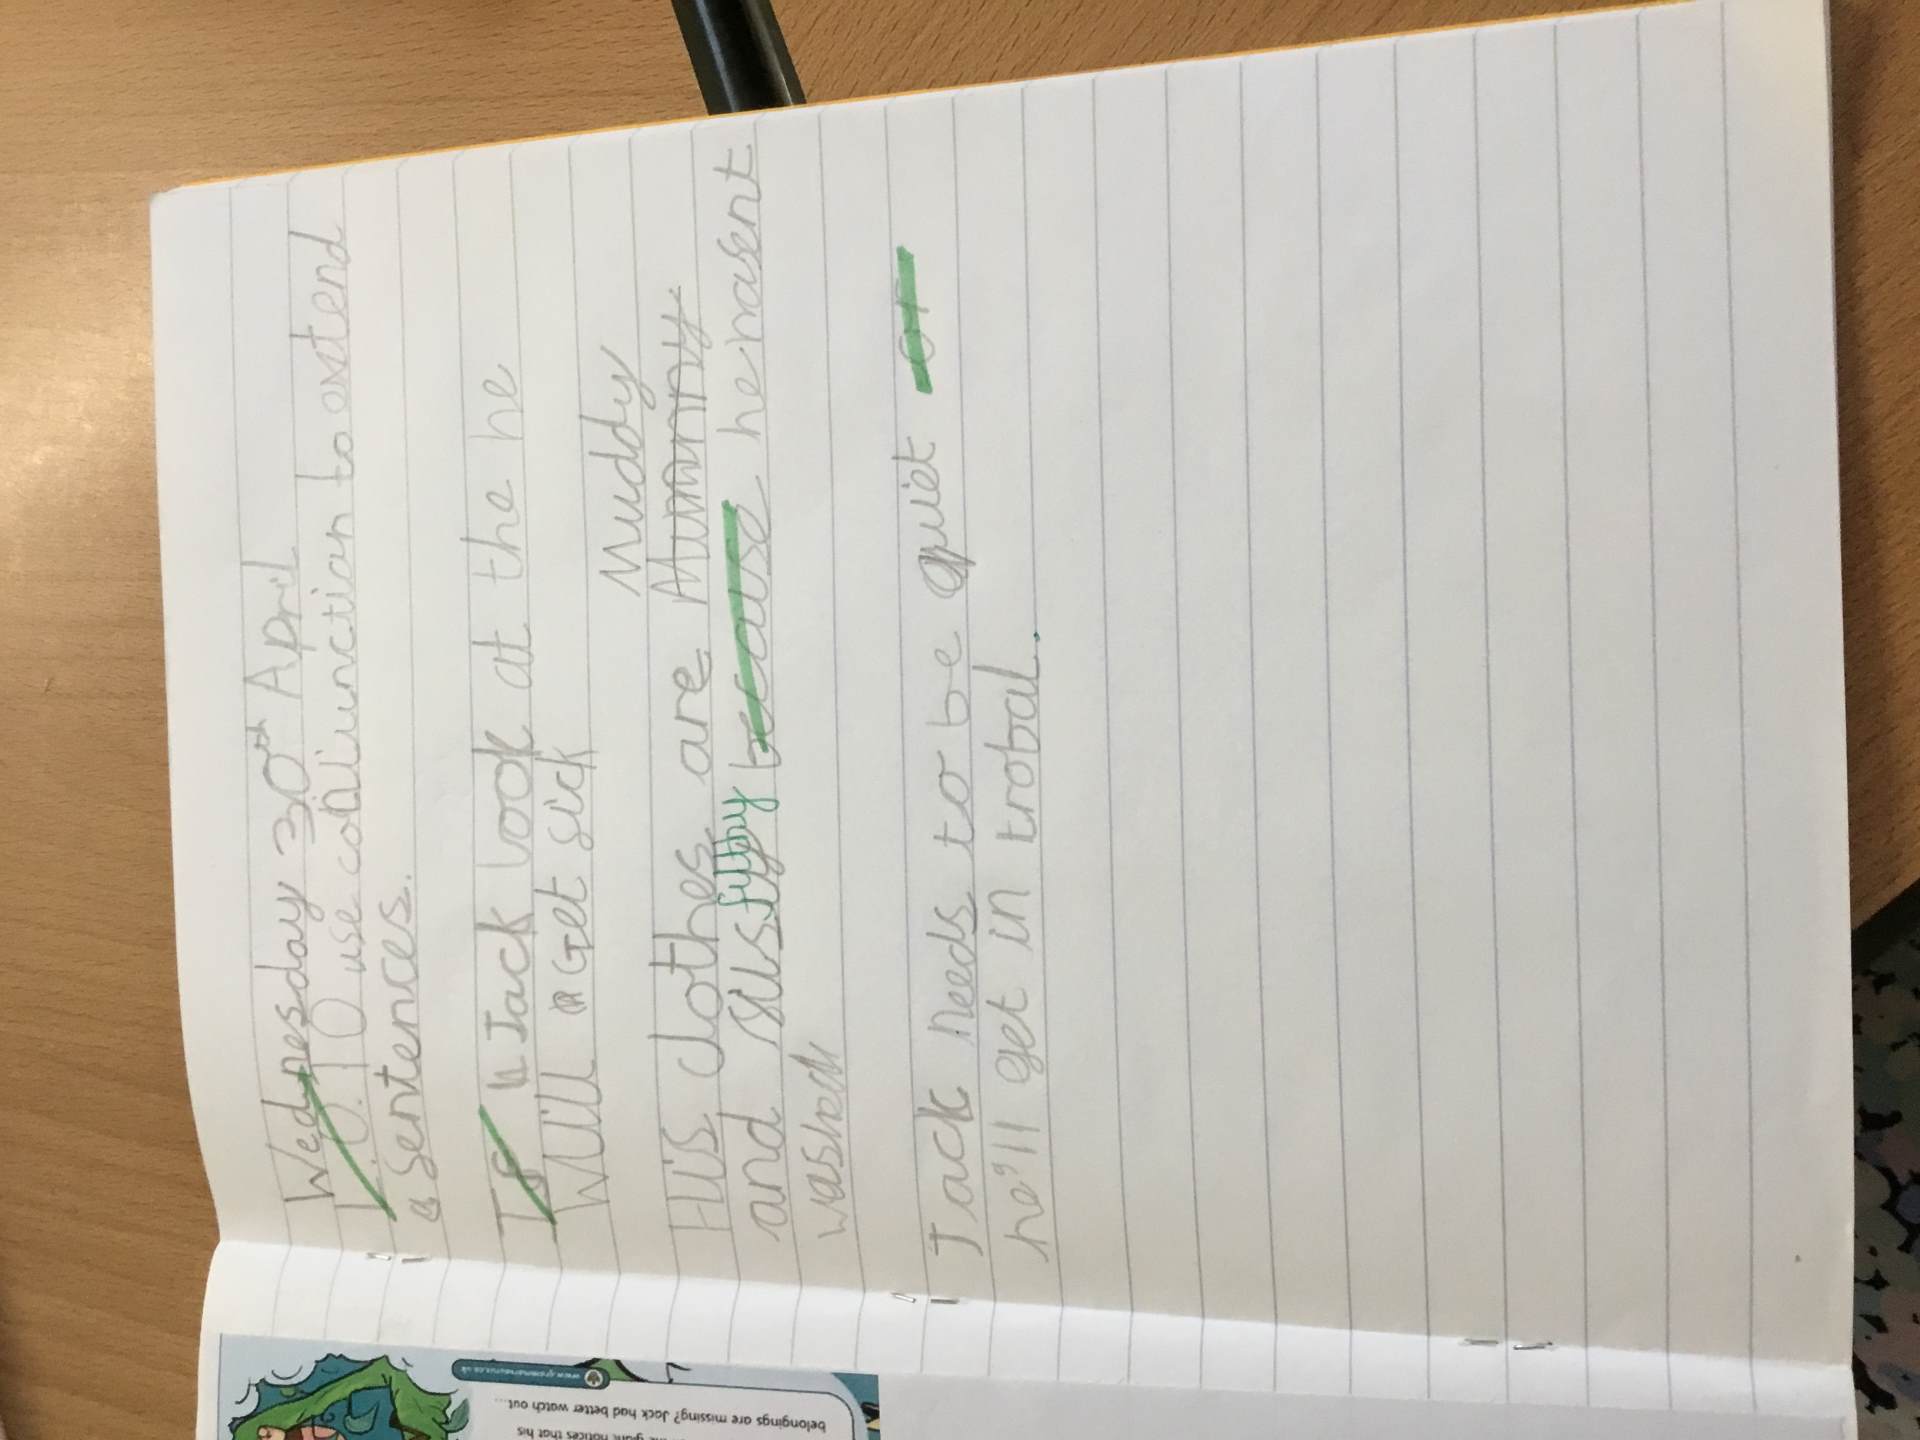 Wednesday 30th April
L.O. TO use conjunction to extend
a sentences.
If Jack look at the he
Will Get sick
Muddy
His clothes are Mummy.
and filthy because he hasent
washed
Jack needs to be quiet or
he'll get in trobal.
www.grammarsaurus.co.uk
the giant notices that his
belongings are missing? Jack had better watch out...